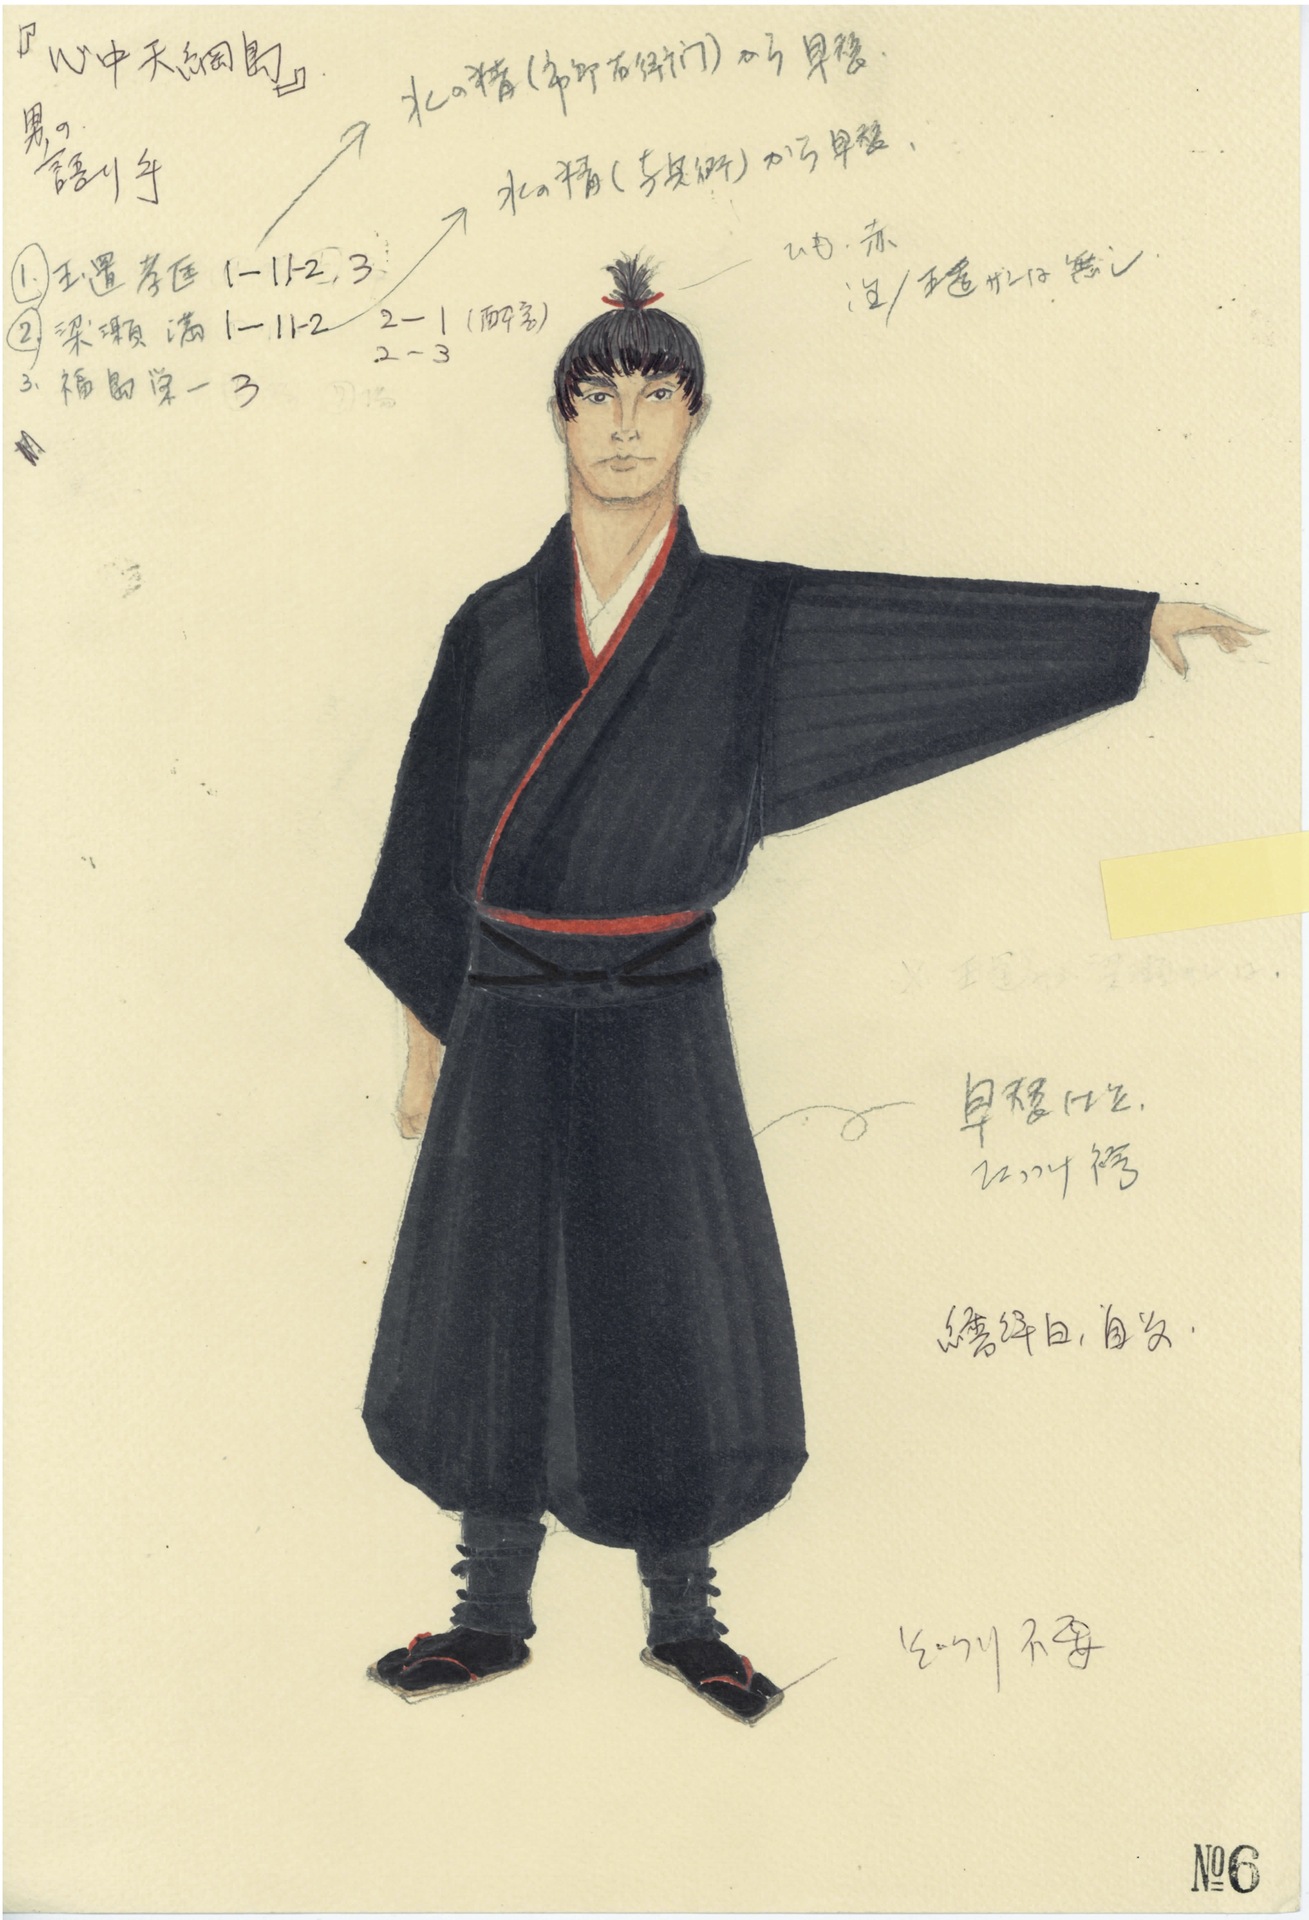 『心中天網島』
男の
語り手
水の精(市郎右衛門)から早替.
水の精(与兵衛)から早替.
ひも.赤
注/玉置サンは無し
1. 玉置孝匡 1-11-2, 3
2. 梁瀬 満 1-11-2 2-1 (酔客)
2-3
3. 福島栄一 3
早替仕立.
たっつけ袴
ぞうり不要
№6